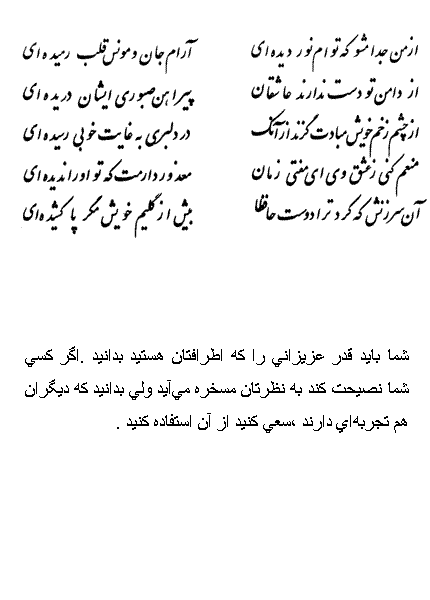 از من جدا مشو که توام نور دیده ای آرام جان و مونس قلب رمیده ای
از دامن تو دست ندارند عاشقان پیراهن صبوری ایشان دریده ای
از چشم زخم خویش مبادت گزند از آنک در دلبری به غایت خوبی رسیده ای
منعم کنی ز عشق وی ای مفتی زمان معذور دارمت که تو او را ندیده ای
آن سرزنش که کرد ترا دوست حافظا بیش از گلیم خویش مگر پا کشیده‌ای
شما بايد قدر عزيزاني را که اطرافتان هستيد بدانيد .اگر کسي
شما نصيحت کند به نظرتان مسخره مي‌آيد ولي بدانيد که ديگران
هم تجربه‌اي دارند ،سعي کنيد از آن استفاده کنيد .